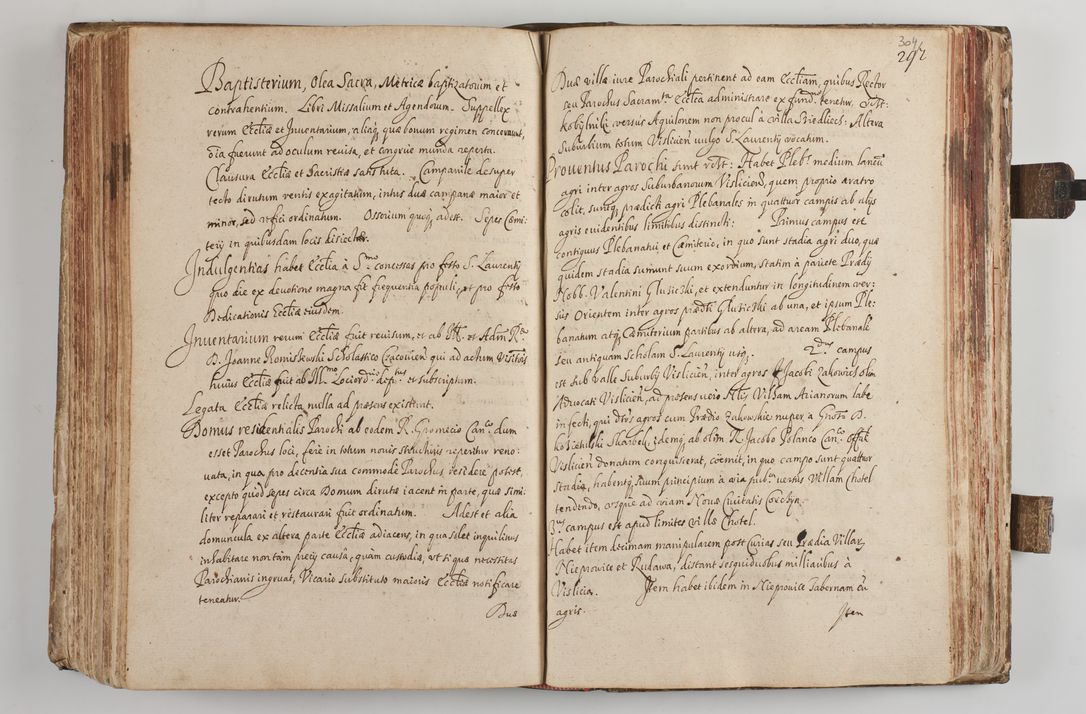 Baptisterium, Olea Sacra, Metricæ baptizatorum et
contrahentium. Libri Missalium et Agendorum. Suppellex
rerum Eccłiæ et Inuentarium, aliaq, quæ bonum regimen concernunt,
oīa fuerunt ad oculum reuisa, et congrue munda reperta.
Clausura Eccłiæ et Sacristiæ satis tuta. Campanile desuper
tecto dirutum ventis exagitatum, intus duæ campanæ maior et
minor, refici ordinatum. Ossorium quoq, adest. Sepes Cœmi:
terij in quibusdam locis disiectæ.
Indulgentias habet Eccłia à S.mo concessas pro festo S. Laurentij
quo die ex deuotione magna fit frequentia populi, et pro festo
Dedicationis Eccłiæ eiusdem.
Inuentarium rerum Eccłiæ fuit reuisum, et ab Ill. et Adm R.do
D. Joanne Romiszewski Scholastico Cracouien qui ad actum Visitãs
huius Eccłiæ fuit ab Ill.mo Loci ord.rio dep.tus et subscriptum.
Legata Eccłiæ relicta nulla ad præsens existunt.
Domus residentialis Parochi ab eodem R. Gnomecio Can.co dum
esset Parochus loci, ferè in totum nouis structuris reperitur reno:
uata, in qua pro decentia sua commodè Parochus residere potest,
excepto quod sepes circa Domum dirutæ iacent in parte, quæ simi:
liter reparari et restaurari fuit ordinatum. Adest et alia
domuncula ex altera parte Eccłiæ adiacens, in qua solet inquilinus
inhabitare non tam precij causa, quàm custodiæ, ut si qua necessitas
Parochianis ingruat, Vicario substituto maioris Eccłiæ notificare
teneatur.
Duæ
304
297
Duæ villæ iure Parochiali pertinent ad eam Eccłiam, quibus Rector
seu Parochus Sacram.ta Eccłica administrare ex fund.ne tenetur. Vt:
Kobylniki versus Aquilonem non procul à villa Siedliecz: Altera
Suburbium totum Vislicien uulgo S. Laurentij vocatum.
Prouentus Parochi sunt Vt: Habet Pleb.s medium laneũ
agri inter agros Suburbanorum Vislicien, quem proprio aratro
colit, suntq, prædicti agri Plebanales in quattuor campis ab alijs
agris euidentibus limitibus distincti: Primus campus est
contiguus Plebanatui et Cœmiterio, in quo sunt stadia agri duo, quæ
quidem stadia sumunt suum exordium, statim à pariete Prædij
Nobb. Valentini Glusiczki, et extenduntur in longitudinem ver:
sus Orientem inter agros prædti Glusiczki ab una, et ipsum Ple:
banatum atq, Cœmiterium partibus ab altera, ad aream Plebanalẽ
seu antiquam Scholam S. Laurentij usq. 2.dus campus
est sub Valle Suburbij Vislicien, inter agros Jacobi Zakowicz olim
Aduocati Vislicien, ad præsens uero Villam Arianorum labe
infecti, qui agros cum Prædio Zakowskie nuper à D.
Skarbek, idemq, ab olim R. Jacobo Polanco Can.co
Vislicien donatum conquisierat, coëmit, in quo campo sunt quattuor
stadia, habentq, suum principium à uia pub.ca versus Villam Chotel
tendendo, usque ad uiam Nouæ Ciuitatis Corczyn.
3.us campus est apud limites villæ Chotel.
Habet item decimam manipularem post Curias seu Prædia Villarũ,
Nieprowice et Rudawa, distant sesquiduobus milliaribus à
Vislicia. Item habet ibidem in Nieprowice Tabernam cũ
agris.
Item